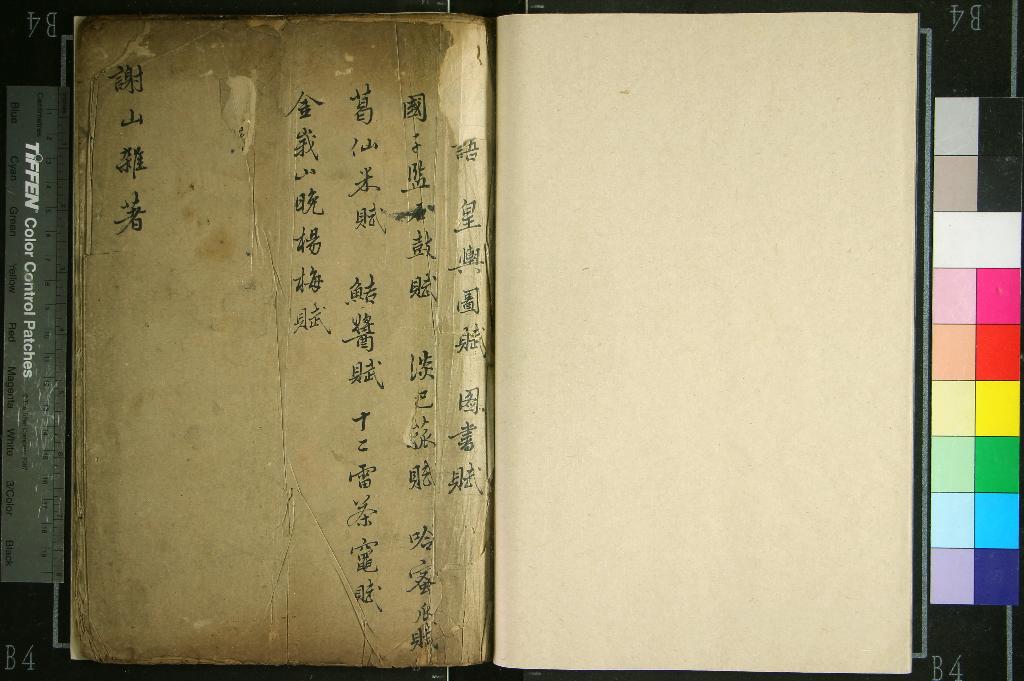 語 皇輿圖賦 圖書賦
國子監石鼓賦 淡巴菰賦 哈蜜瓜賦
葛仙米賦 鮚醬賦 十二雷茶竈賦
金峩山晚楊梅賦
謝山雜著
B4
B4
B4
B4
TIFFEN Color Control Patches
Centimetres
Blue Cyan Green Yellow Red Magenta White 3/Color Black